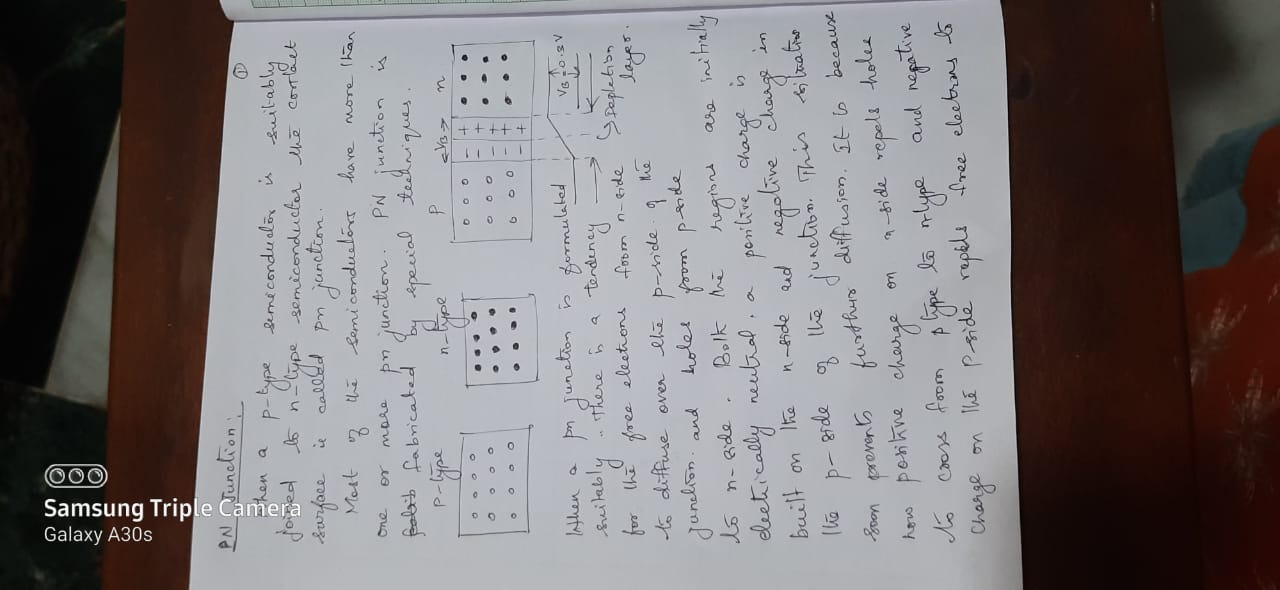 PN Junction:
①
When a p-type semiconductor is suitably
joined to n-type semiconductor the contact
surface is called pn junction.
Most of the semiconductors have more than
one or more pn junction. PN junction is
fabricated by special techniques.
p-type
n-type
P
<VB>
n
VB = 0.3V
Depletion
layer.
When a pn junction is formulated
suitably there is a tendency
for the free electrons from n-side
to diffuse over the p-side of the
junction and holes from p-side
to n-side. Both the regions are initially
electrically neutral, a positive charge is
built on the n-side and negative charge in
the p-side of the junction. This situation
soon prevents further diffusion. It is because
now positive charge on n-side repels holes
to cross from p type to n type and negative
charge on the p-side repels free electrons to
Samsung Triple Camera
Galaxy A30s